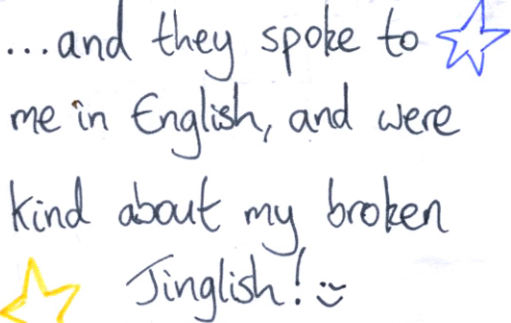 ...and they spoke to
me in English, and were
kind about my broken
Jinglish! :)